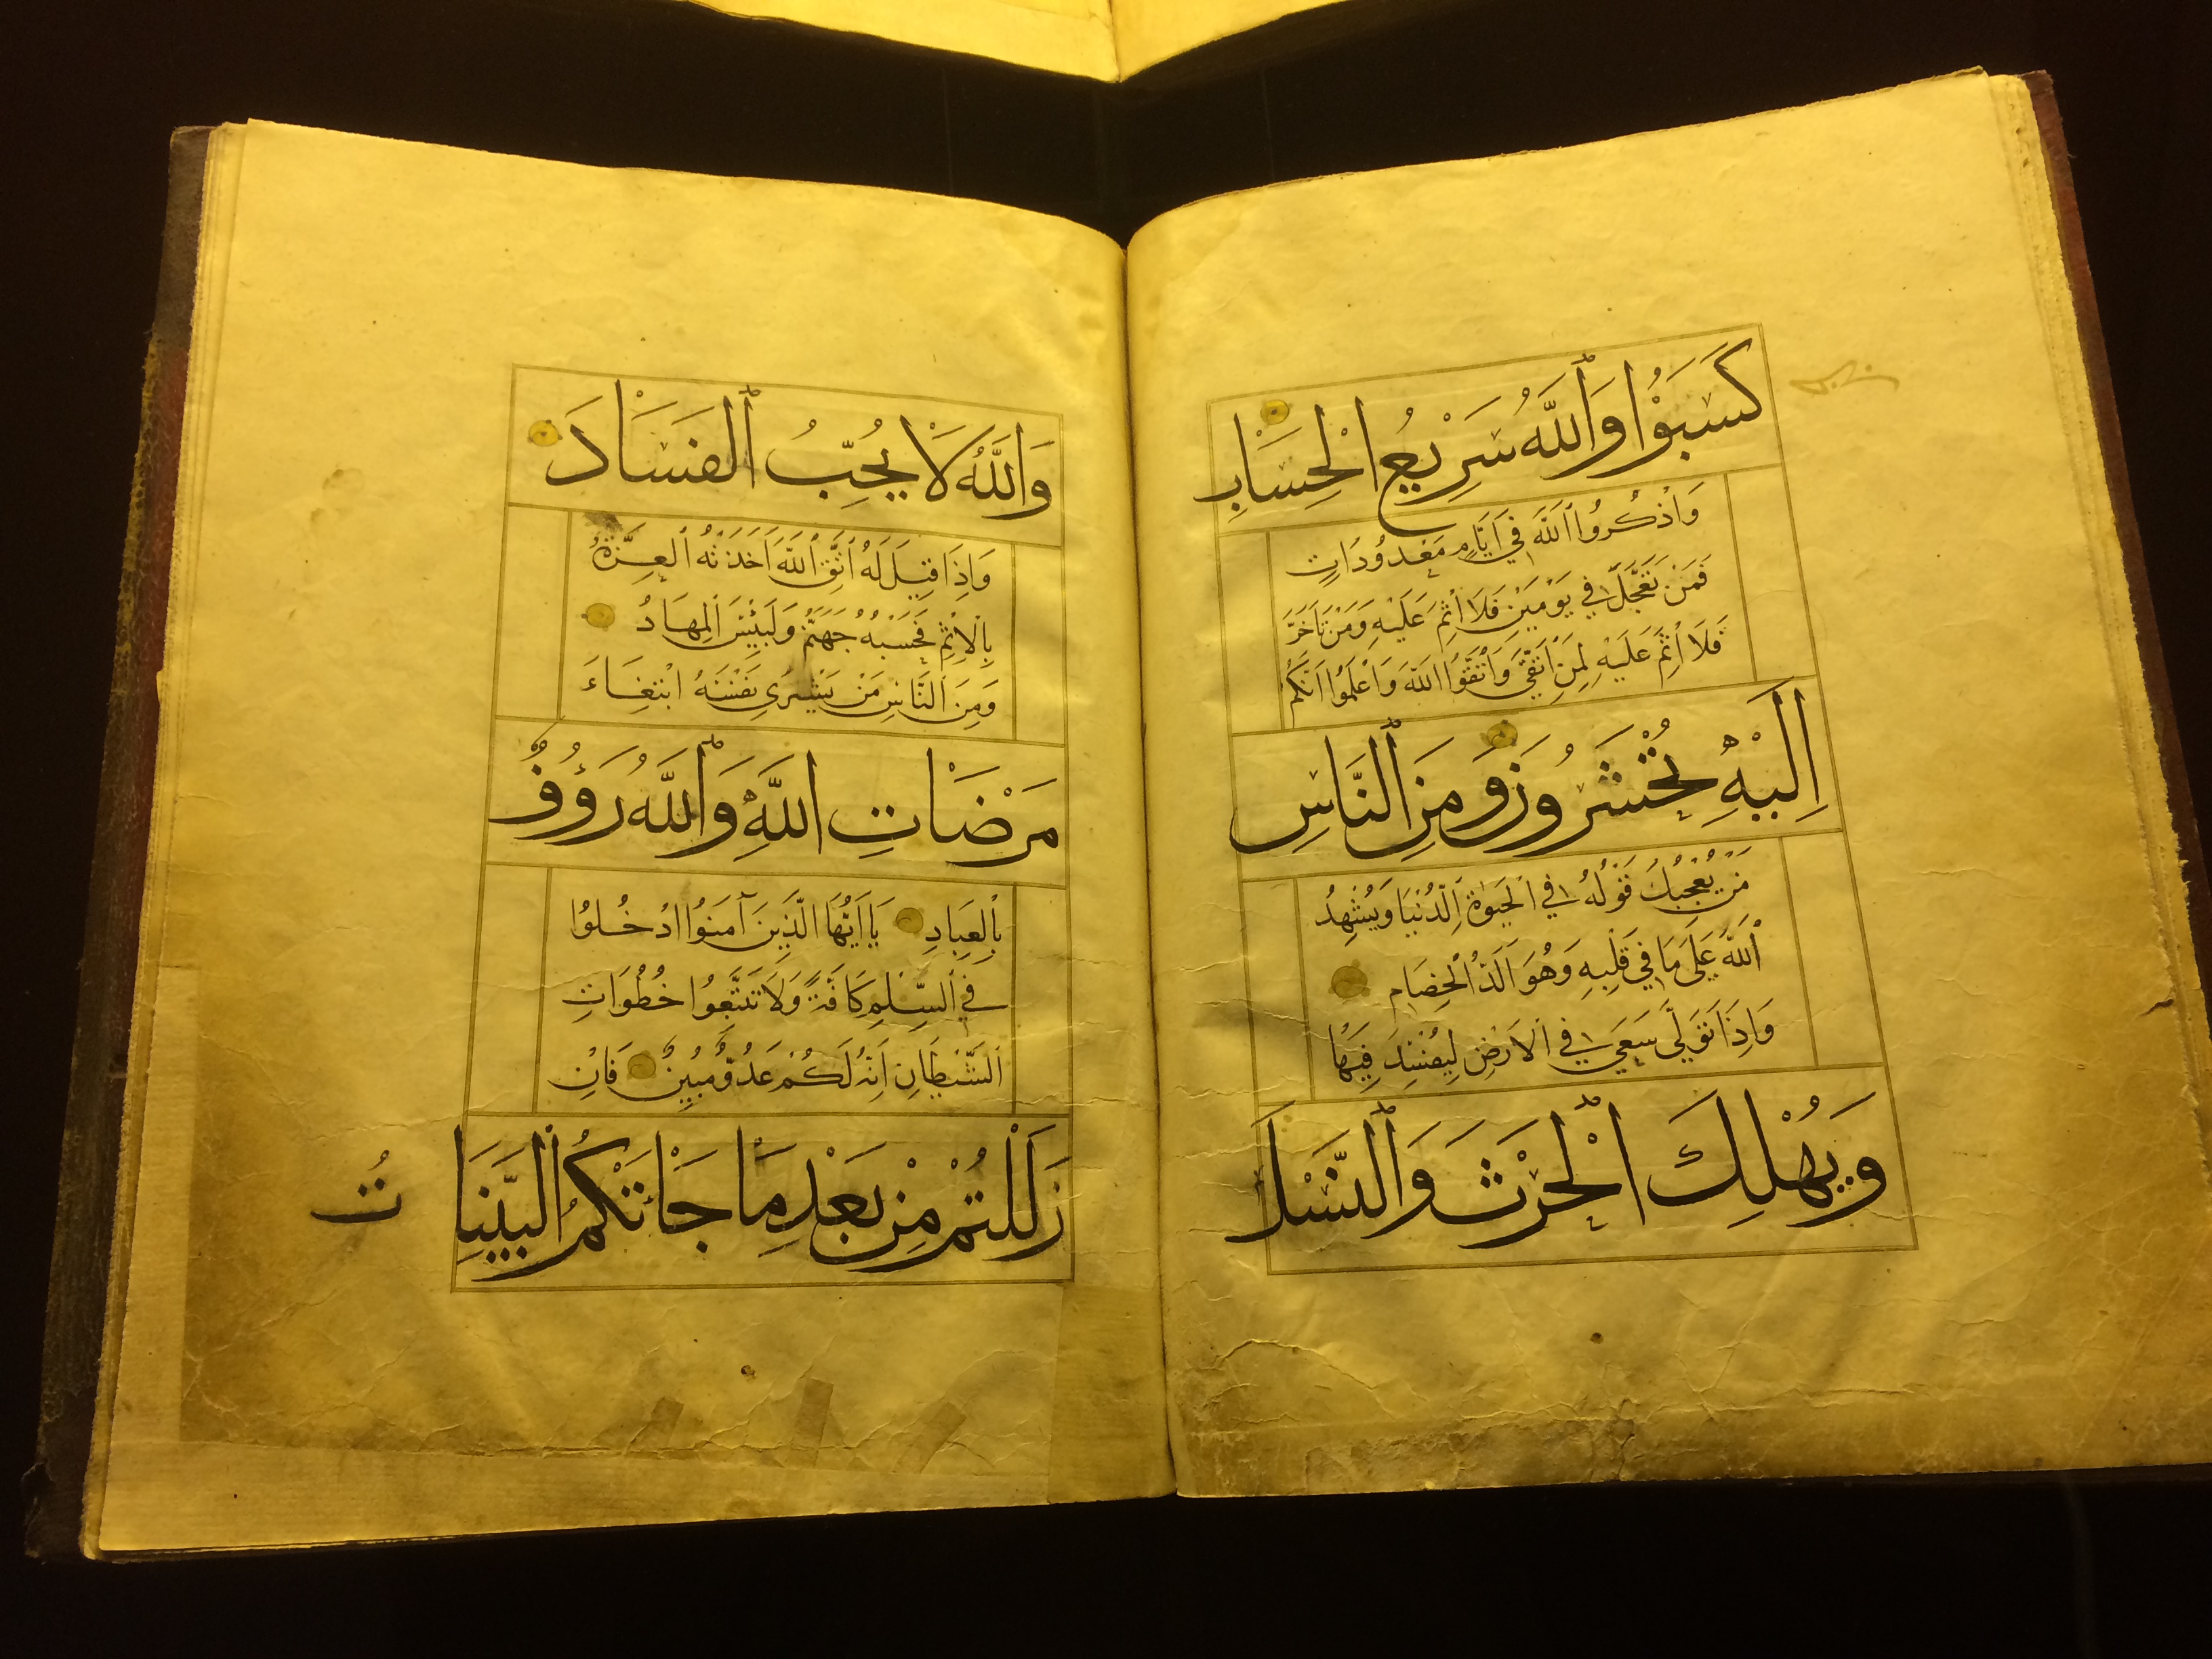 كَسَبُوْا وَاللَّهُ سَرِيْعُ الْحِسَابِ
وَاذْكُرُوا اللَّهَ فِي أَيَّامٍ مَعْدُودَاتٍ
فَمَنْ تَعَجَّلَ فِي يَوْمَيْنِ فَلَا إِثْمَ عَلَيْهِ وَمَنْ تَأَخَّرَ
فَلَا إِثْمَ عَلَيْهِ لِمَنِ اتَّقَى وَاتَّقُوا اللَّهَ وَاعْلَمُوا أَنَّكُمْ
إِلَيْهِ تُحْشَرُونَ وَمِنَ النَّاسِ
مَنْ يُعْجِبُكَ قَوْلُهُ فِي الْحَيٰوةِ الدُّنْيَا وَيُشْهِدُ
اللَّهَ عَلَى مَا فِي قَلْبِهِ وَهُوَ أَلَدُّ الْخِصَامِ
وَإِذَا تَوَلَّى سَعَى فِي الْأَرْضِ لِيُفْسِدَ فِيهَا
وَيُهْلِكَ الْحَرْثَ وَالنَّسْلَ
وَاللَّهُ لَا يُحِبُّ الْفَسَادَ
وَإِذَا قِيلَ لَهُ اتَّقِ اللَّهَ أَخَذَتْهُ الْعِزَّةُ
بِالْإِثْمِ فَحَسْبُهُ جَهَنَّمُ وَلَبِئْسَ الْمِهَادُ
وَمِنَ النَّاسِ مَنْ يَشْرِي نَفْسَهُ ابْتِغَاءَ
مَرْضَاتِ اللَّهِ وَاللَّهُ رَؤُفٌ
بِالْعِبَادِ يَا أَيُّهَا الَّذِينَ آمَنُوا ادْخُلُوا
فِي السِّلْمِ كَافَّةً وَلَا تَتَّبِعُوا خُطُوَاتِ
الشَّيْطَانِ إِنَّهُ لَكُمْ عَدُوٌّ مُبِينٌ فَإِنْ
زَلَلْتُمْ مِنْ بَعْدِ مَا جَاءَتْكُمُ الْبَيِّنَاتُ